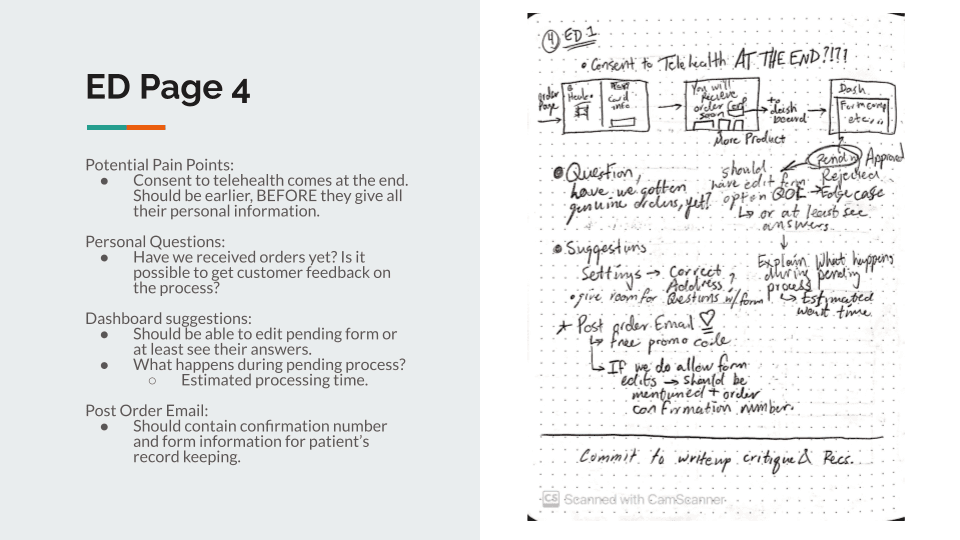 ED Page 4
Potential Pain Points:
● Consent to telehealth comes at the end.
Should be earlier, BEFORE they give all
their personal information.
Personal Questions:
● Have we received orders yet? Is it
possible to get customer feedback on
the process?
Dashboard suggestions:
● Should be able to edit pending form or
at least see their answers.
● What happens during pending process?
○ Estimated processing time.
Post Order Email:
● Should contain confirmation number
and form information for patient's
record keeping.
4 ED 1
• Consent to Telehealth AT THE END?!?!
order
Page
Card
info
You will
recieve
order
soon
More Product
to
dash
board
Dash
Form comp
etc...
Pending Approved
Rejected
Edge case
• Question,
have we gotten
genuine orders, yet?
should
have edit form
option QOL
↳ or at least see
answers
Explain what happens
during pending
process
↳ Estimated
wait time
• Suggestions
Settings → Correct
Address?
• give room for Questions w/ form
★ Post order Email ♡
↳ free promo code
↳ If we do allow form
edits → should be
mentioned + order
confirmation number.
Commit to writeup critique & Recs.
CS Scanned with CamScanner